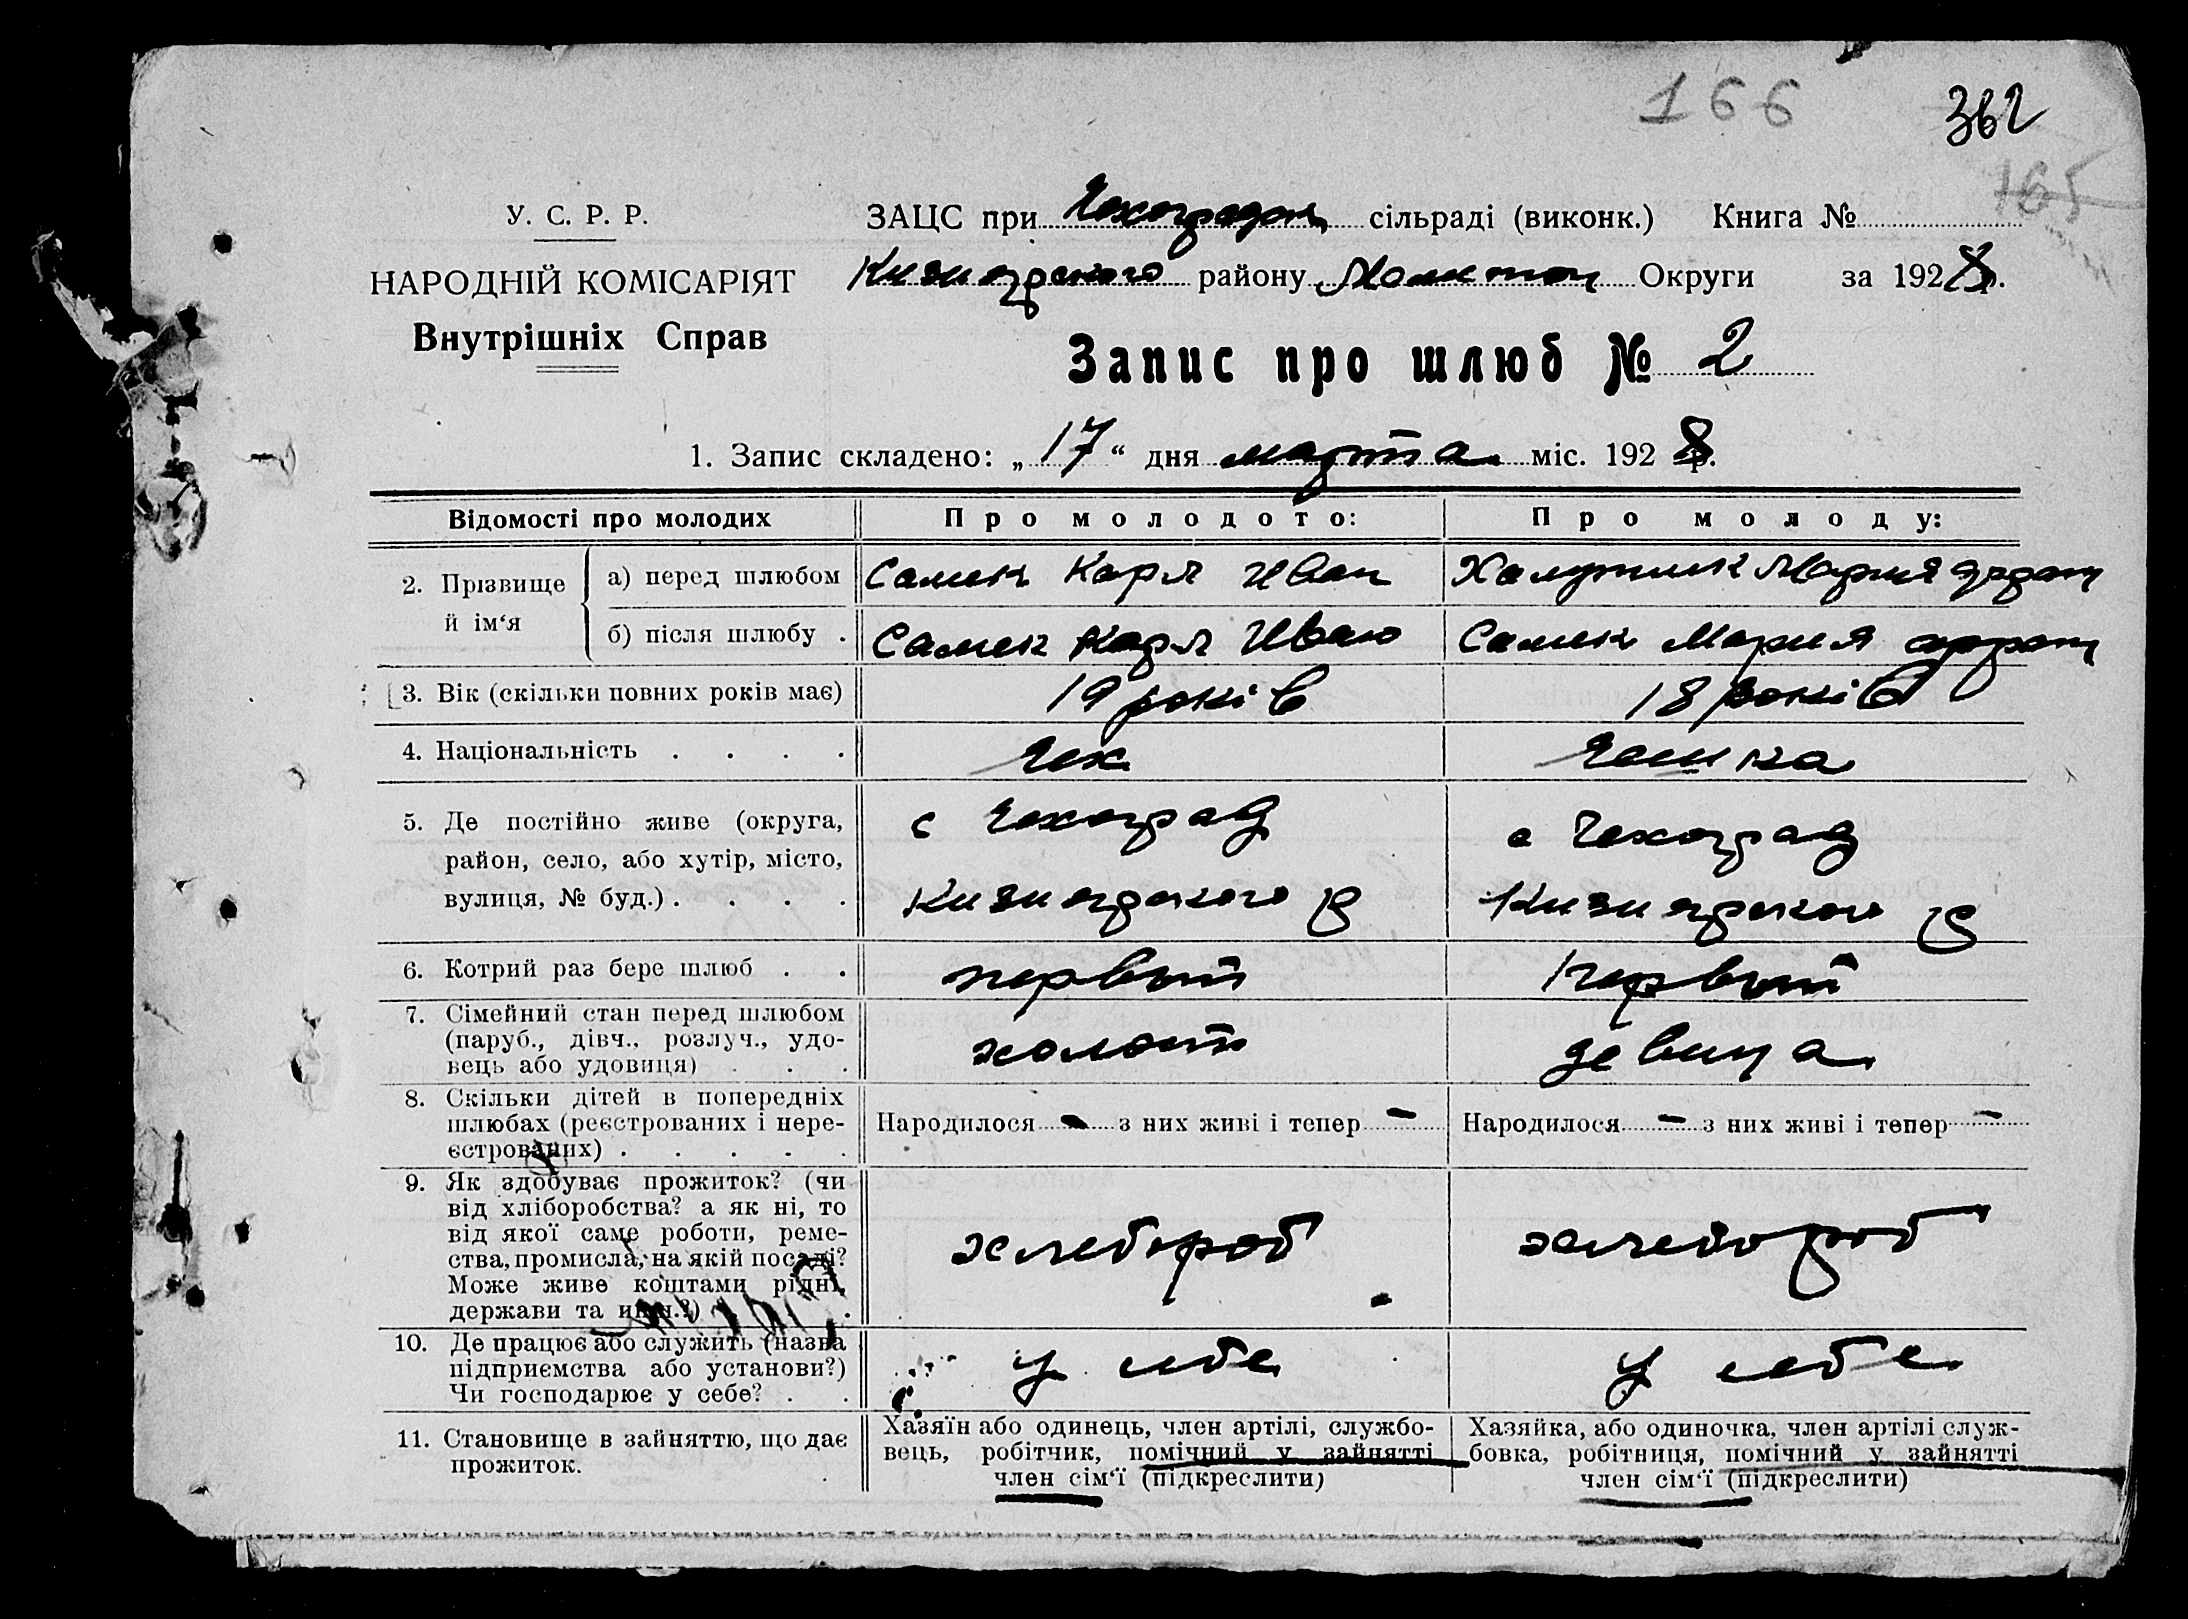 166
362
165
У. С. Р. Р.
НАРОДНІЙ КОМІСАРІЯТ
Внутрішніх Справ
ЗАЦС при Чехоградск сільраді (виконк.) Книга №
Кизиярского району Мелитоп Округи за 1928 р.
Запис про шлюб № 2
1. Запис складено: „17“ дня марта міс. 1928 р.
Відомості про молодих
Про молодого:
Про молоду:
2. Прізвище й ім‘я
а) перед шлюбом
Самек Карл Иван
Мария
б) після шлюбу .
Самек Карл Иван
Самек Мария
3. Вік (скільки повних років має)
19 років
18 років
4. Національність . . . .
Чех
Чешка
5. Де постійно живе (округа,
район, село, або хутір, місто,
вулиця, № буд.) . . . .
с Чехоград
Кизиярского р
с Чехоград
Кизиярского р
6. Котрий раз бере шлюб . .
первый
первый
7. Сімейний стан перед шлюбом
(паруб., дівч., розлуч., удо-
вець або удовиця) . . .
холост
девица
8. Скільки дітей в попередніх
шлюбах (реєстрованих і нере-
єстрованих) . . . . .
Народилося - з них живі і тепер -
Народилося - з них живі і тепер -
9. Як здобуває прожиток? (чи
від хліборобства? а як ні, то
від якої саме роботи, реме-
ства, промисла, на якій посаді?
Може живе коштами рідні,
держави та инш.?)
хлебороб
хлебороб
10. Де працює або служить (назва
підприємства або установи?)
Чи господарює у себе? . .
у себе
у себе
11. Становище в зайняттю, що дає
прожиток.
Хазяїн або одинець, член артілі, службо-
вець, робітчик, помічний у зайнятті
член сім‘ї (підкреслити)
Хазяйка, або одиночка, член артілі служ-
бовка, робітниця, помічний у зайнятті
член сім‘ї (підкреслити)